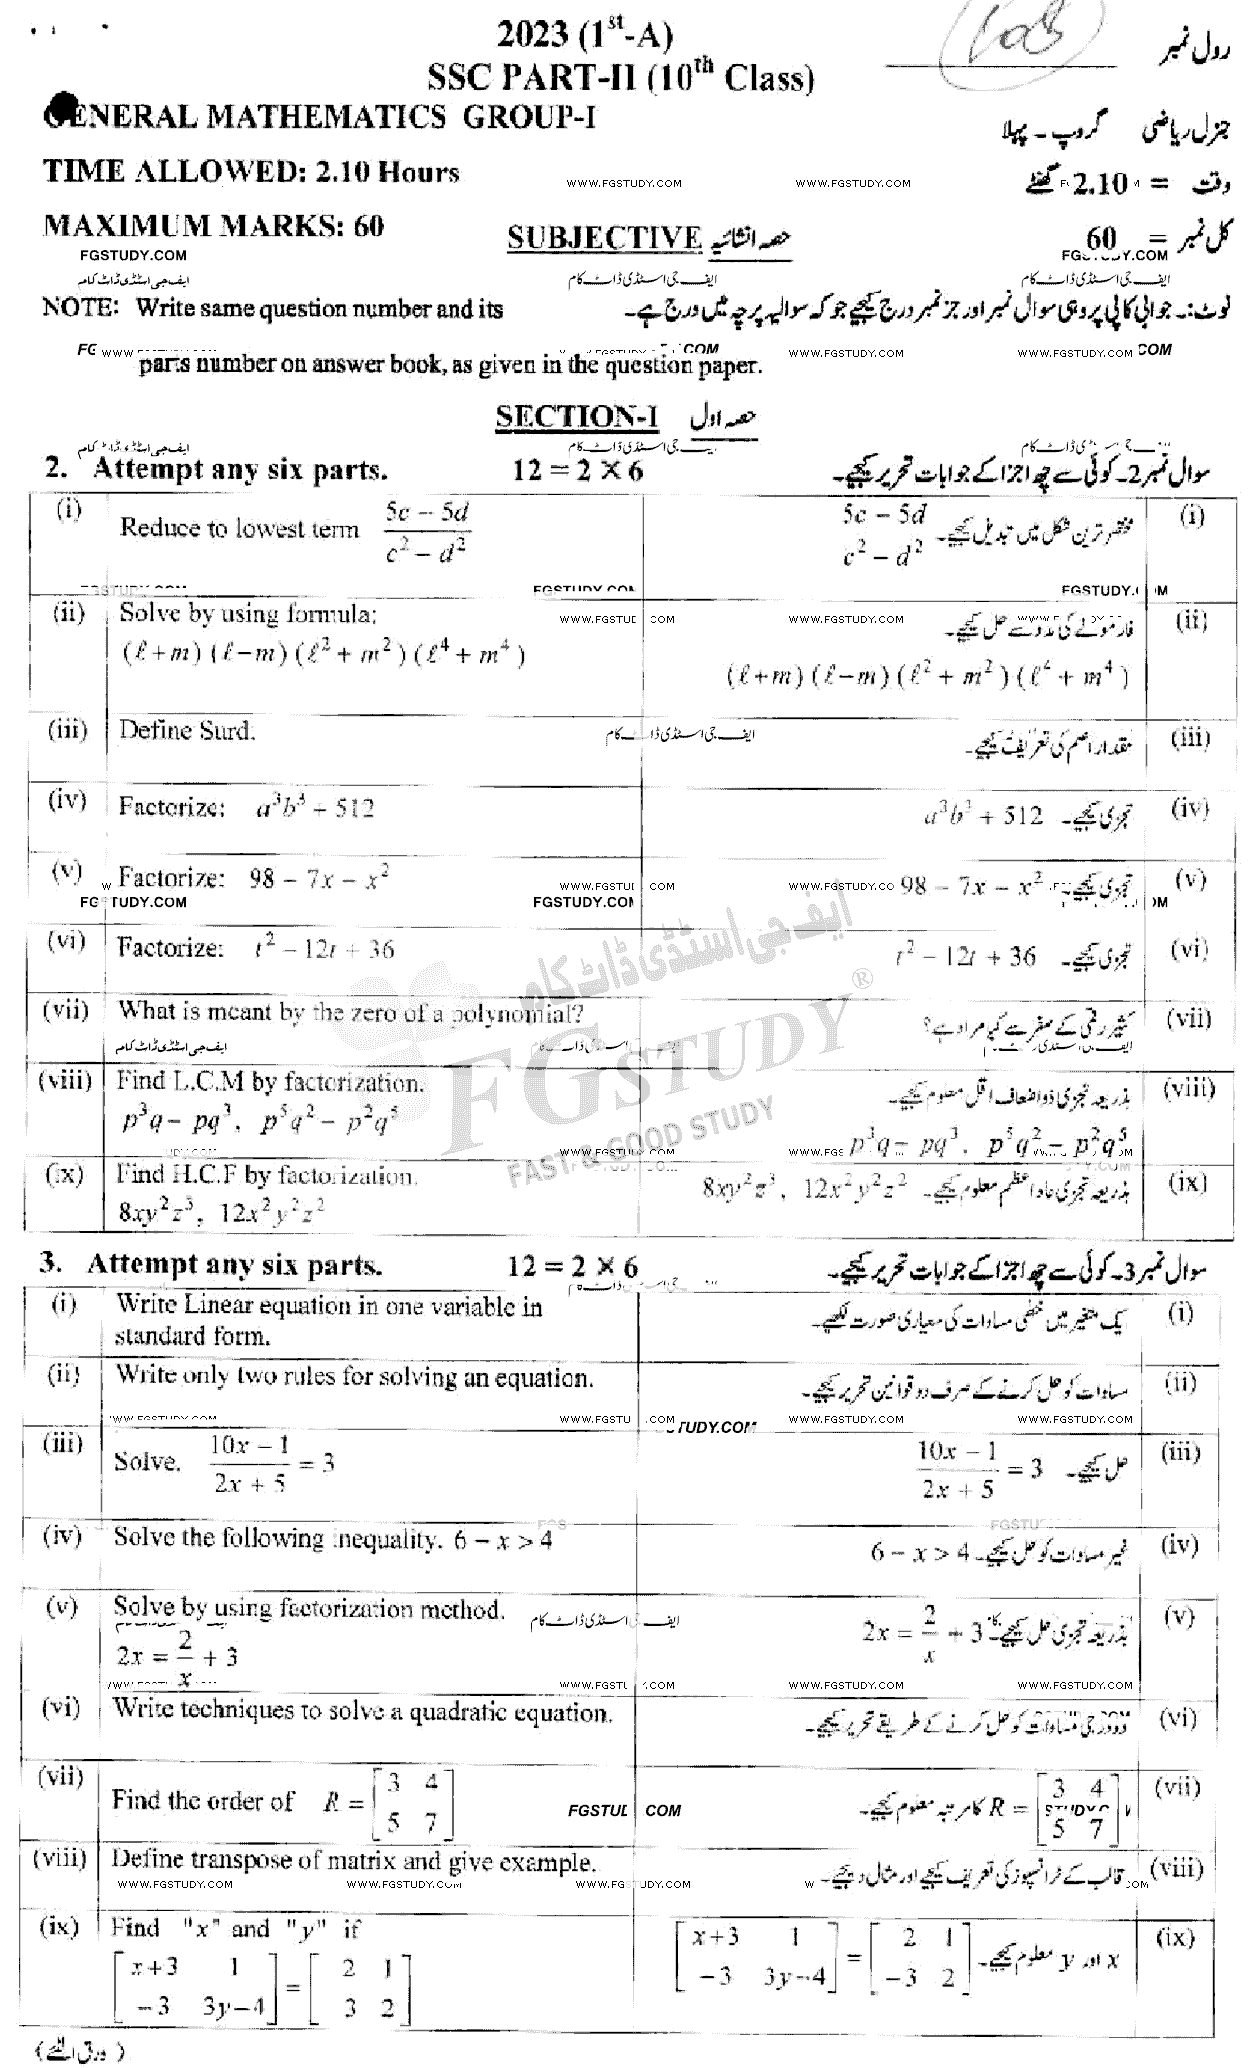 2023 (1st-A)
SSC PART-II (10th Class)
رول نمبر
GENERAL MATHEMATICS GROUP-I
جنرل ریاضی گروپ ۔ پہلا
TIME ALLOWED: 2.10 Hours
وقت = 2.10 گھنٹے
MAXIMUM MARKS: 60
SUBJECTIVE حصہ انشائیہ
کل نمبر = 60
NOTE: Write same question number and its
نوٹ:۔ جوابی کاپی پر وہی سوال نمبر اور جز نمبر درج کیجیے جو کہ سوالیہ پرچہ میں درج ہے۔
parts number on answer book, as given in the question paper.
SECTION-I حصہ اول
2. Attempt any six parts. 12 = 2 × 6 سوال نمبر 2۔ کوئی سے چھ اجزا کے جوابات تحریر کیجیے۔
(i) Reduce to lowest term (5c – 5d)/(c² – d²)
مختصر ترین شکل میں تبدیل کیجیے۔ (5c – 5d)/(c² – d²) (i)
(ii) Solve by using formula:
(ℓ+m) (ℓ–m) (ℓ² + m²) (ℓ⁴ + m⁴)
فارمولے کی مدد سے حل کیجیے۔ (ii)
(ℓ+m) (ℓ–m) (ℓ² + m²) (ℓ⁴ + m⁴)
(iii) Define Surd.
مقدار اصم کی تعریف کیجیے۔ (iii)
(iv) Factorize: a³b³ + 512
تجزی کیجیے۔ a³b³ + 512 (iv)
(v) Factorize: 98 – 7x – x²
تجزی کیجیے۔ 98 – 7x – x² (v)
(vi) Factorize: t² – 12t + 36
تجزی کیجیے۔ t² – 12t + 36 (vi)
(vii) What is meant by the zero of a polynomial?
کثیر رقمی کے صفر سے کیا مراد ہے؟ (vii)
(viii) Find L.C.M by factorization.
p³q – pq³, p⁵q² – p²q⁵
بذریعہ تجزی ذواضعاف اقل معلوم کیجیے۔ (viii)
p³q – pq³, p⁵q² – p²q⁵
(ix) Find H.C.F by factorization.
8xy²z³, 12x²y²z²
بذریعہ تجزی عاد اعظم معلوم کیجیے۔ 8xy²z³, 12x²y²z² (ix)
3. Attempt any six parts. 12 = 2 × 6 سوال نمبر 3۔ کوئی سے چھ اجزا کے جوابات تحریر کیجیے۔
(i) Write Linear equation in one variable in
standard form.
یک متغیر میں خطی مساوات کی معیاری صورت لکھیے۔ (i)
(ii) Write only two rules for solving an equation.
مساوات کو حل کرنے کے صرف دو قوانین تحریر کیجیے۔ (ii)
(iii) Solve. (10x – 1)/(2x + 5) = 3
حل کیجیے۔ (10x – 1)/(2x + 5) = 3 (iii)
(iv) Solve the following inequality. 6 – x > 4
غیر مساوات کو حل کیجیے۔ 6 – x > 4 (iv)
(v) Solve by using factorization method.
2x = 2/x + 3
بذریعہ تجزی حل کیجیے۔ 2x = 2/x + 3 (v)
(vi) Write techniques to solve a quadratic equation.
دو درجی مساوات کو حل کرنے کے طریقے تحریر کیجیے۔ (vi)
(vii) Find the order of R = [3 4
5 7]
R = [3 4 کا مرتبہ معلوم کیجیے۔ (vii)
5 7]
(viii) Define transpose of matrix and give example.
قالب کے ٹرانسپوز کی تعریف کیجیے اور مثال دیجیے۔ (viii)
(ix) Find "x" and "y" if
[x+3 1 = [2 1
–3 3y–4] 3 2]
x اور y معلوم کیجیے۔ [x+3 1 = [2 1 (ix)
–3 3y–4] –3 2]
(ورق الٹیے)
FGSTUDY
FAST & GOOD STUDY
ایف جی اسٹڈی ڈاٹ کام
WWW.FGSTUDY.COM